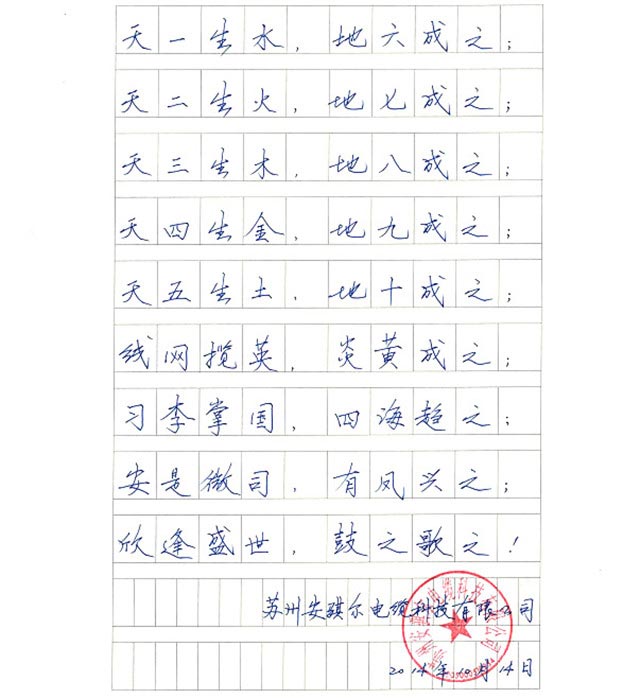 天一生水，地六成之；
天二生火，地七成之；
天三生木，地八成之；
天四生金，地九成之；
天五生土，地十成之；
线网揽英，炎黄成之；
习李掌国，四海趋之；
安是微司，有凤兴之；
欣逢盛世，鼓之歌之！
苏州安骐尔电缆科技有限公司
2014年10月14日